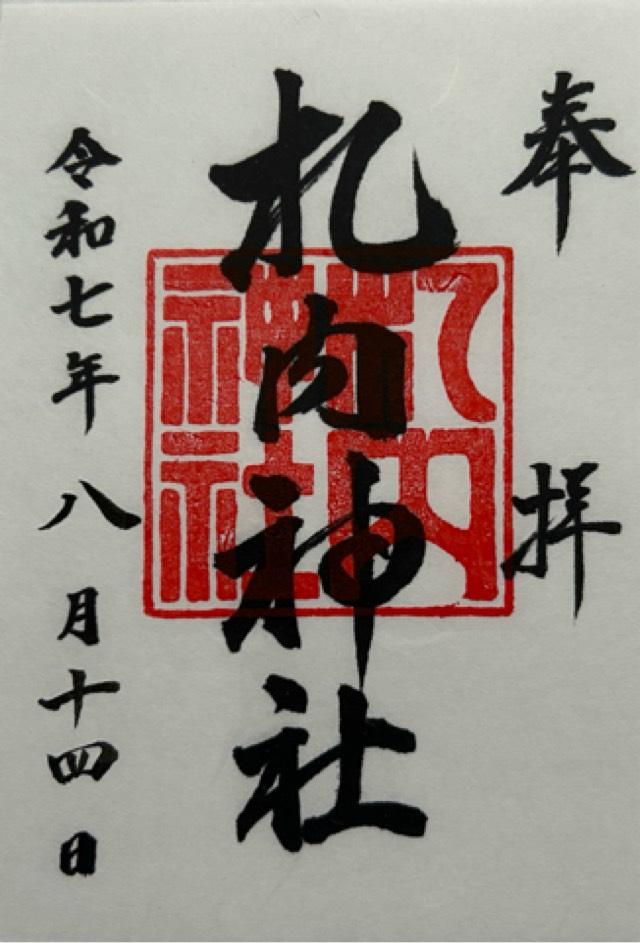 奉拝
札内神社
札内神社
令和七年八月十四日